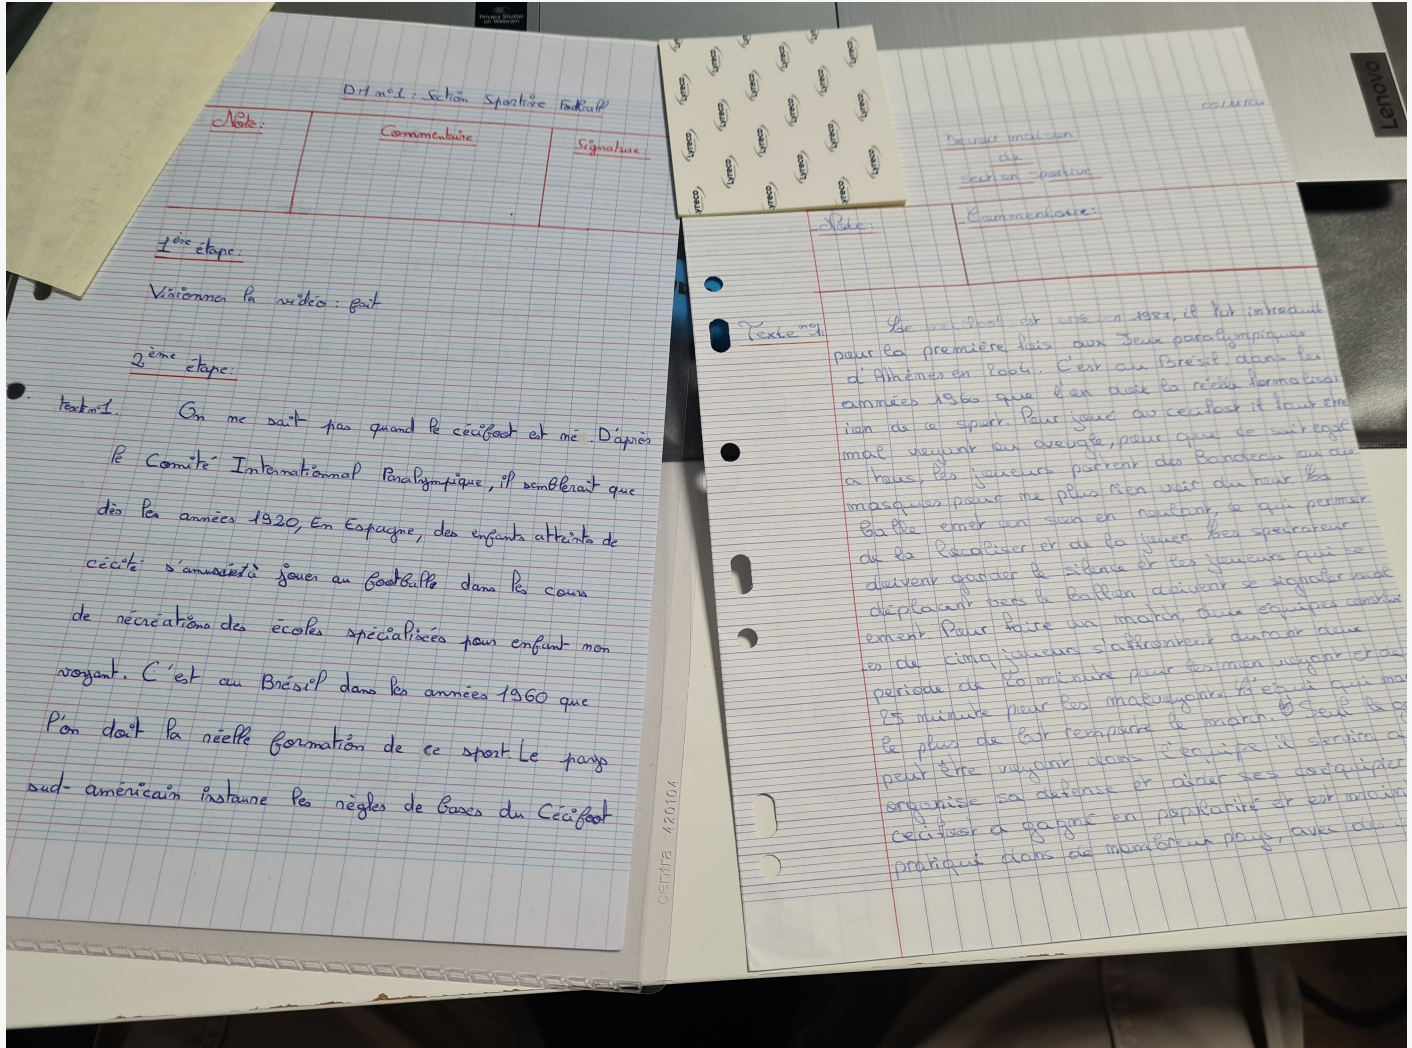 Privacy Shutter
on Webcam
DM n°1 : Section Sportive Football
Note:
Commentaire
Signature:
1ère étape:
Visionner la vidéo : fait
2ème étape:
text n°1.
On ne sait pas quand le cécifoot est né. D'après
le Comité Internationnal Paralympique, il semblerait que
dès les années 1920, En Espagne, des enfants atteints de
cécité s'amusaient à jouer au footballe dans les cours
de récréations des écoles spécialisées pour enfant non
voyant. C'est au Brésil dans les années 1960 que
l'on doit la réelle formation de ce sport. Le pays
sud-américain instaure les règles de bases du Cécifoot
centra 420104
Lyreco
Lyreco
Lyreco
Lyreco
Lyreco
Lyreco
Lyreco
Lyreco
Lyreco
Lyreco
Lyreco
lenovo
Devoir maison
de
section sportive
Note:
Commentaire:
Texte n°1:
Le est en 1920, il fut introduit
pour la première fois aux Jeux paralympiques
d'Athènes en 2004. C'est au Brésil dans les
années 1960 que l'on doit la réelle formalisat
ion de ce sport. Pour joué au cecifoot il faut être
mal voyant ou aveugle, pour que ce soit egal
a tous, les joueurs portent des bandeau ou des
masques pour ne plus rien voir du tout. La
balle emet un son en roulant, ce qui permet
de la localiser et de la jouer. Les
doivent garder le silence et les joueurs qui se
déplacent vers le ballon doivent se signaler vocal
ement. Pour faire un match, deux équipes
es de cinq joueurs s'affrontent durant deux
periode de 20 minute pour les non voyant et de
25 minute pour les malvoyant. L'équi qui ma
le plus de but remporte le match. Seul le
peut être voyant dans l'équipe il
organise sa defense et aider ses coéquipier
cecifoot a gagné en popularité et est
pratiqué dans de nombreux pays, avec des